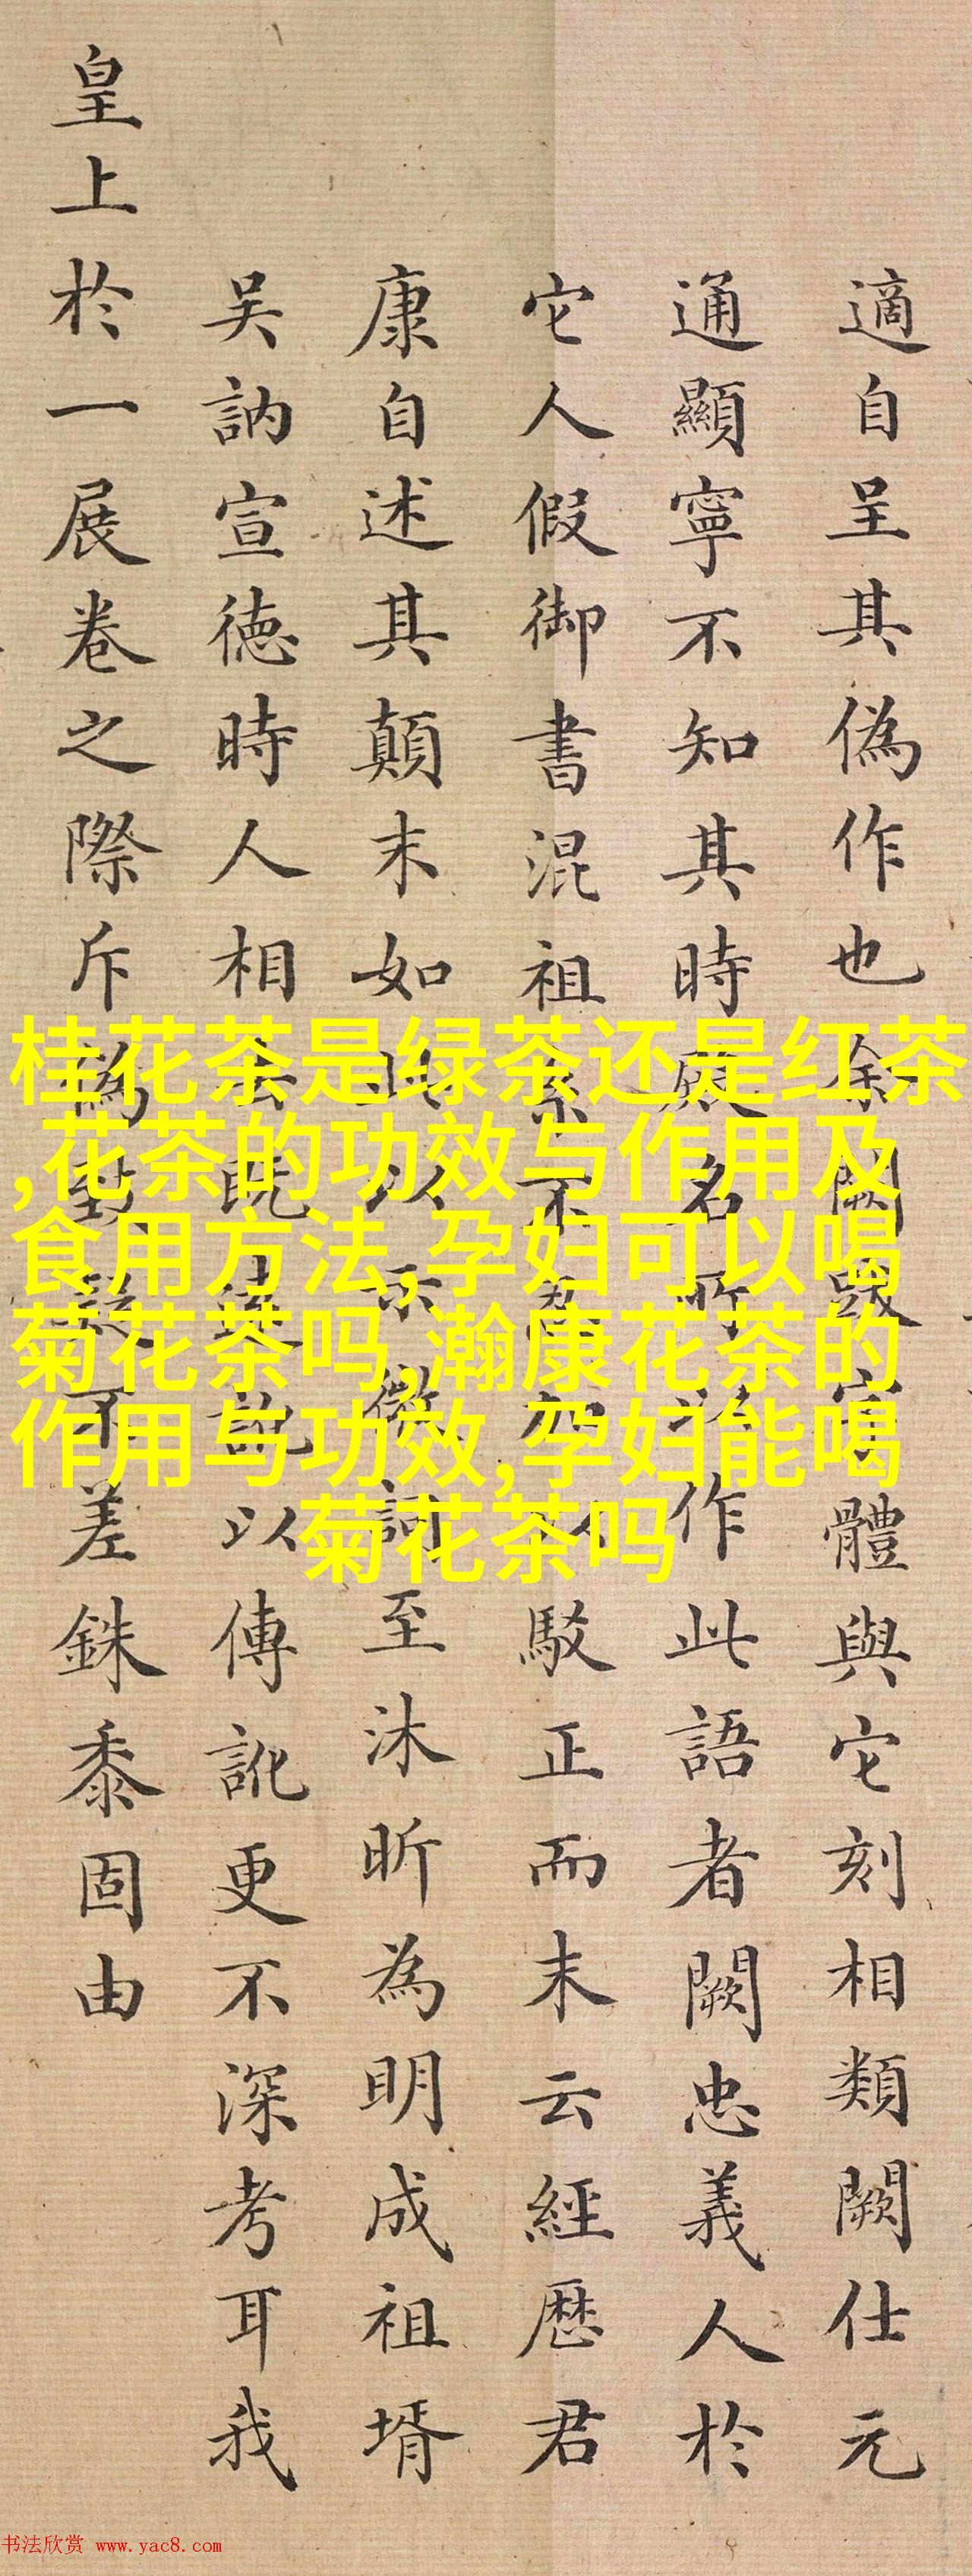 適自呈其偽作也余闕跋字體與它刻相類闕仕元
通顯寧不知其時殿名所作此語者闕忠義人於
它人假御書混祖系不為駁正而末云經歷君
康自述其顛末如此以示微詞至沐昕為明成祖壻
吴訥宣徳時人相去既遠訛以傳訛更不深考耳我
皇上於一展卷之際斥為對疑不差銖黍固由
桂花茶是绿茶还是红茶
,花茶的功效与作用及
食用方法,孕妇可以喝
菊花茶吗,瀚康花茶的
作用与功效,孕妇能喝
菊花茶吗
书法欣赏 www.yac8.com